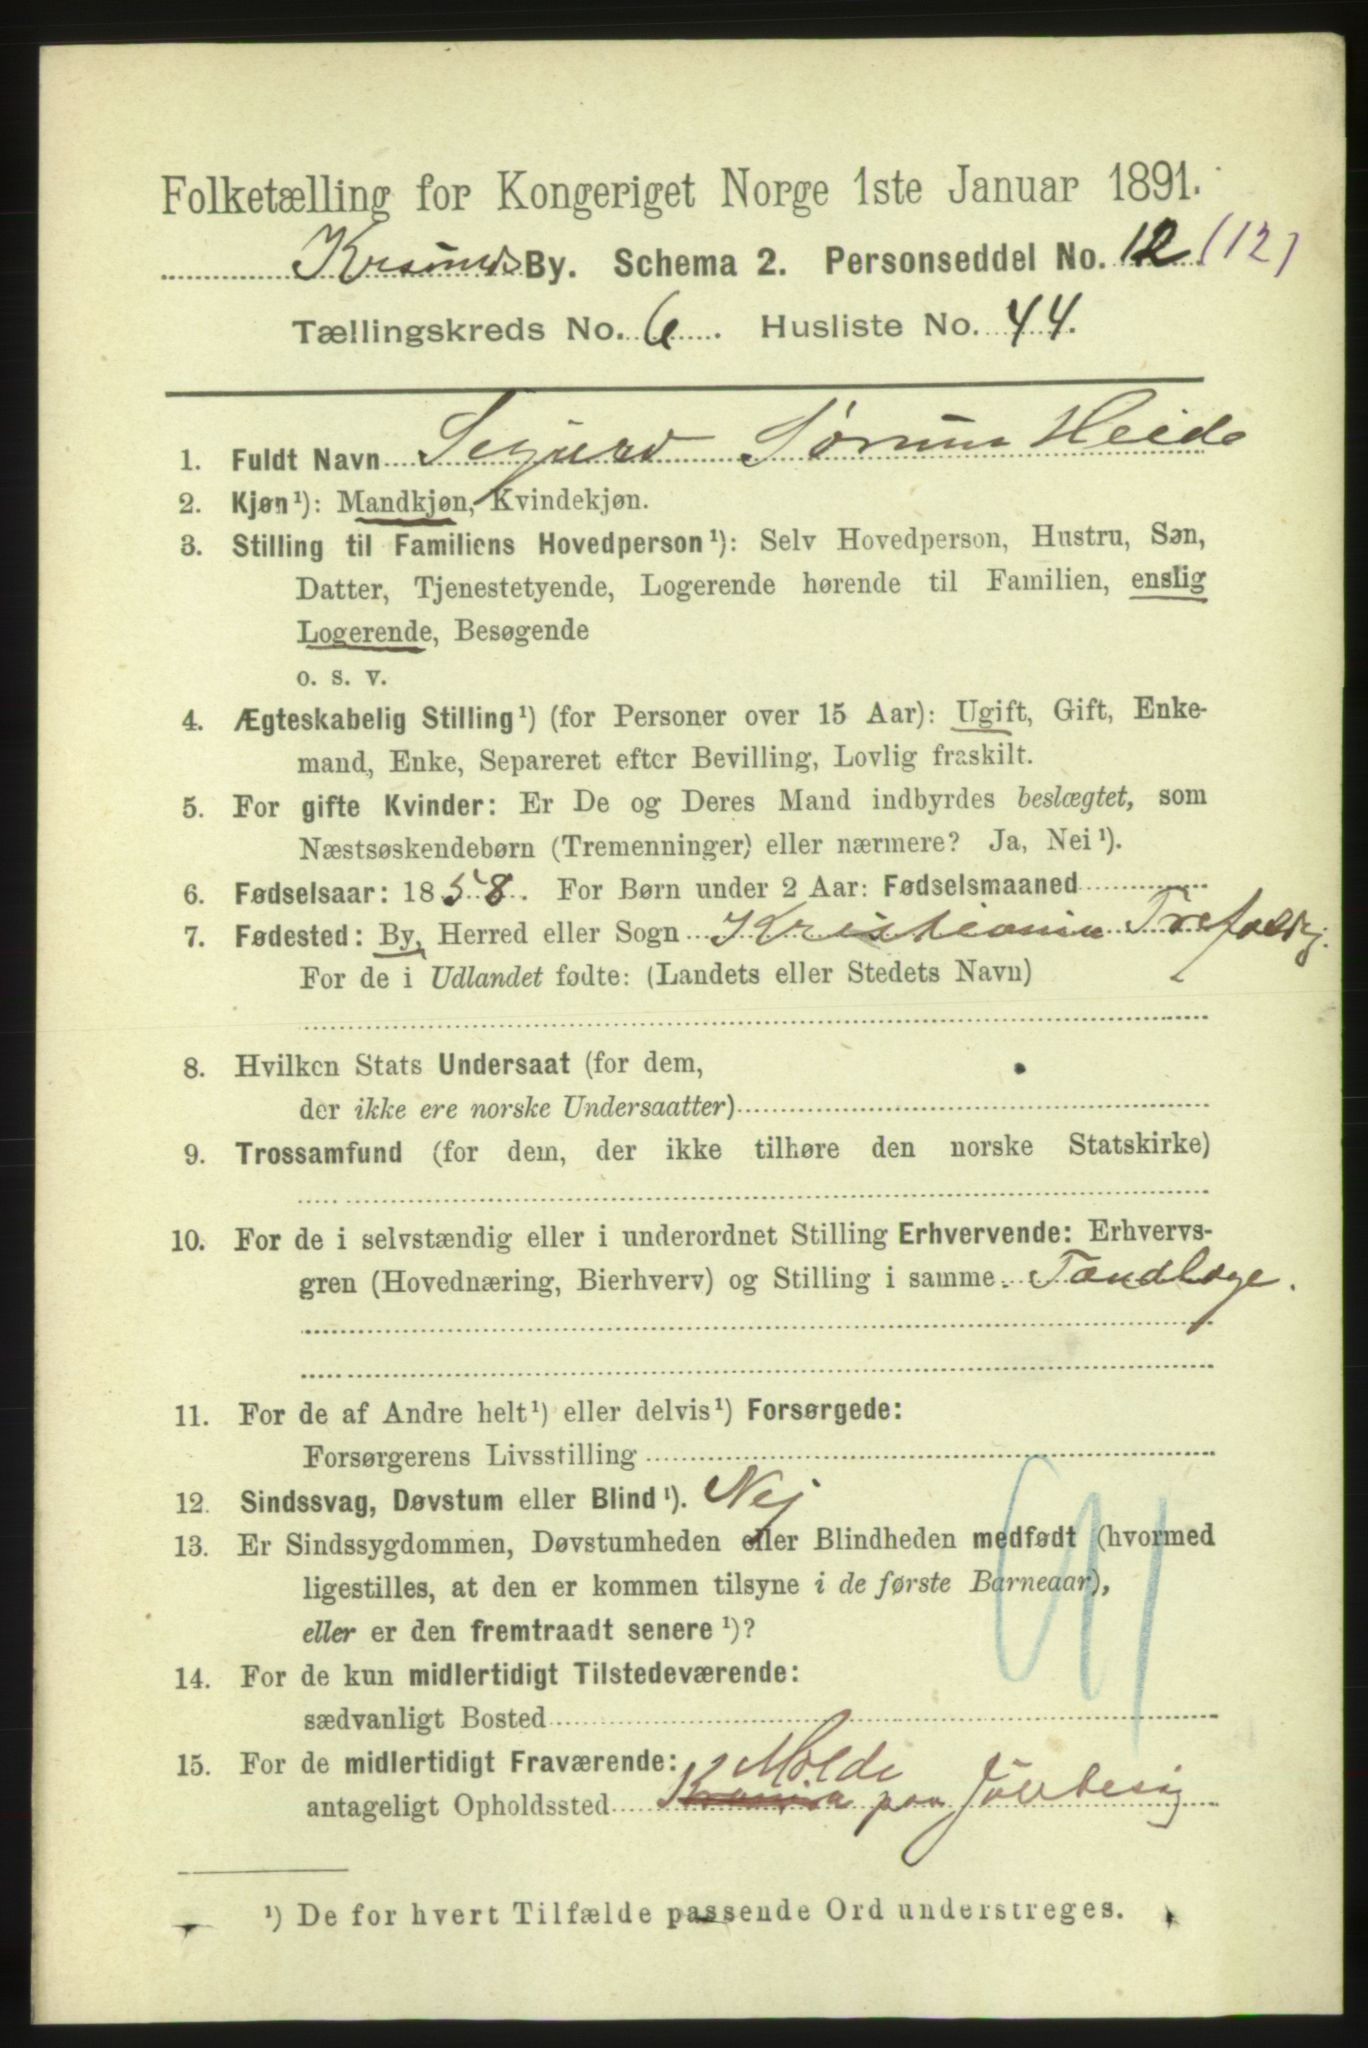 Folketælling for Kongeriget Norge 1ste Januar 1891.
Krsunds By. Schema 2. Personseddel No. 12 (12)
Tællingskreds No. 6. Husliste No. 44.
1. Fuldt Navn Sigurd Sørum Heide
2. Kjøn¹): Mandkjøn, Kvindekjøn.
3. Stilling til Familiens Hovedperson¹): Selv Hovedperson, Hustru, Søn,
Datter, Tjenestetyende, Logerende hørende til Familien, enslig
Logerende, Besøgende
o. s. v.
4. Ægteskabelig Stilling¹) (for Personer over 15 Aar): Ugift, Gift, Enke-
mand, Enke, Separeret efter Bevilling, Lovlig fraskilt.
5. For gifte Kvinder: Er De og Deres Mand indbyrdes beslægtet, som
Næstsøskendebørn (Tremenninger) eller nærmere? Ja, Nei¹).
6. Fødselsaar: 1858. For Børn under 2 Aar: Fødselsmaaned
7. Fødested: By, Herred eller Sogn Kristiania Trefoldig.
For de i Udlandet fødte: (Landets eller Stedets Navn)
8. Hvilken Stats Undersaat (for dem,
der ikke ere norske Undersaatter)
9. Trossamfund (for dem, der ikke tilhøre den norske Statskirke)
10. For de i selvstændig eller i underordnet Stilling Erhvervende: Erhvervs-
gren (Hovednæring, Bierhverv) og Stilling i samme. Tandlæge.
11. For de af Andre helt¹) eller delvis¹) Forsørgede:
Forsørgerens Livsstilling
12. Sindssvag, Døvstum eller Blind¹). Nej
13. Er Sindssygdommen, Døvstumheden eller Blindheden medfødt (hvormed
ligestilles, at den er kommen tilsyne i de første Barneaar),
eller er den fremtraadt senere¹)?
14. For de kun midlertidigt Tilstedeværende:
sædvanligt Bosted
15. For de midlertidigt Fraværende: Molde
antageligt Opholdssted paa Julebesøg
¹) De for hvert Tilfælde passende Ord understreges.